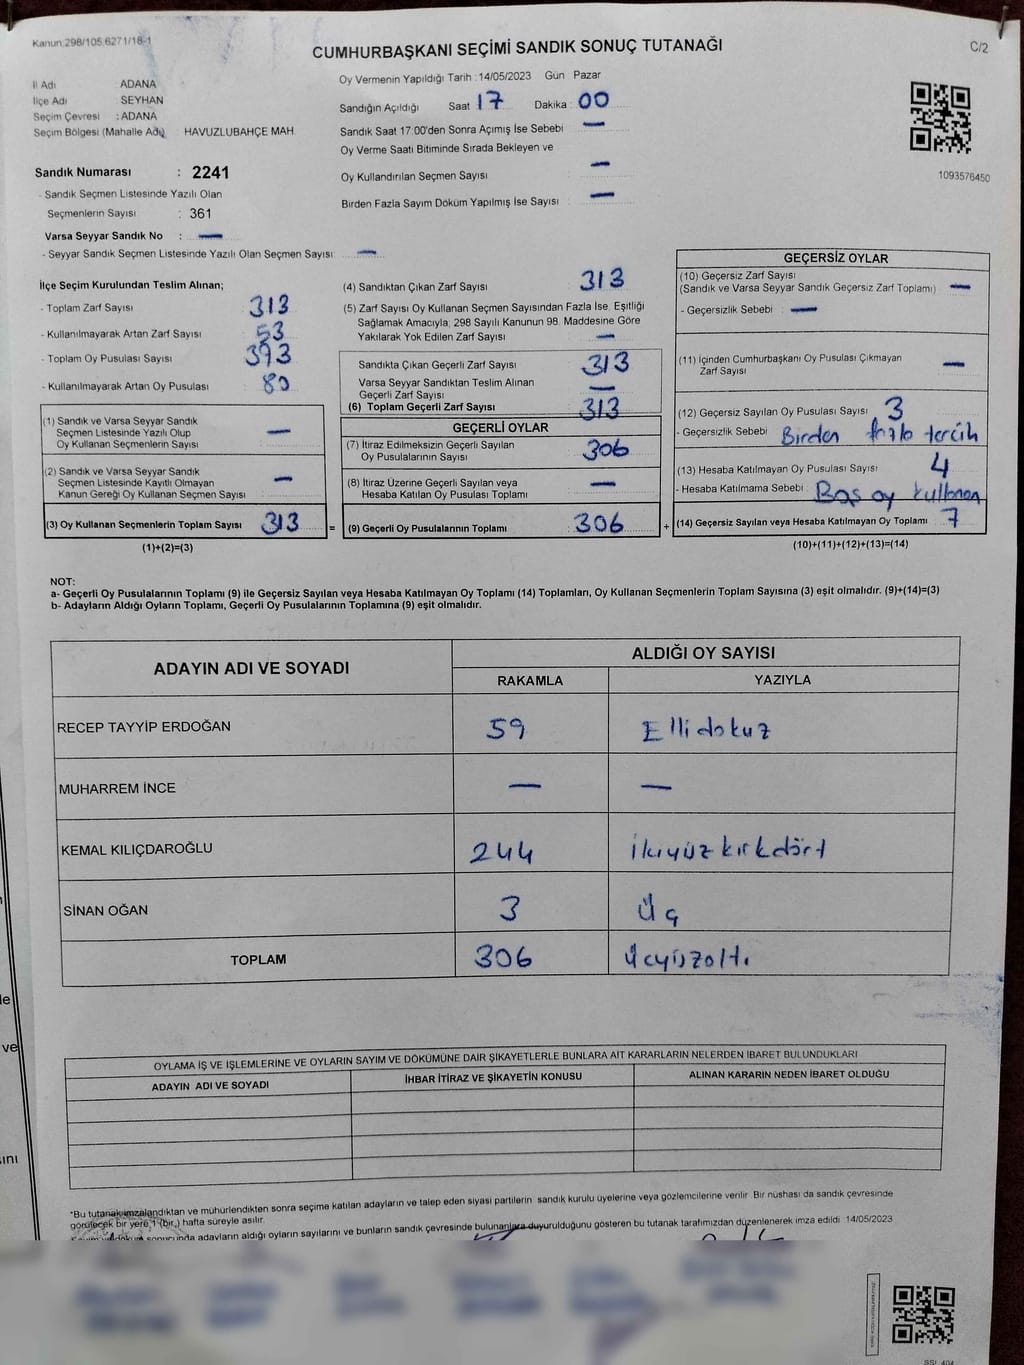 Kanun:298/105;6271/18-1
CUMHURBAŞKANI SEÇİMİ SANDIK SONUÇ TUTANAĞI
C/2
İl Adı ADANA
İlçe Adı SEYHAN
Seçim Çevresi : ADANA
Seçim Bölgesi (Mahalle Adı) HAVUZLUBAHÇE MAH.
Oy Vermenin Yapıldığı Tarih : 14/05/2023 Gün : Pazar
Sandığın Açıldığı Saat 17 Dakika : 00
Sandık Saat 17:00'den Sonra Açımış İse Sebebi —
Oy Verme Saati Bitiminde Sırada Bekleyen ve
Oy Kullandırılan Seçmen Sayısı —
Birden Fazla Sayım Döküm Yapılmış İse Sayısı —
1093576450
Sandık Numarası : 2241
- Sandık Seçmen Listesinde Yazılı Olan
Seçmenlerin Sayısı : 361
Varsa Seyyar Sandık No : —
- Seyyar Sandık Seçmen Listesinde Yazılı Olan Seçmen Sayısı —
İlçe Seçim Kurulundan Teslim Alınan;
- Toplam Zarf Sayısı 313
- Kullanılmayarak Artan Zarf Sayısı 53
- Toplam Oy Pusulası Sayısı 393
- Kullanılmayarak Artan Oy Pusulası 80
(1) Sandık ve Varsa Seyyar Sandık
Seçmen Listesinde Yazılı Olup
Oy Kullanan Seçmenlerin Sayısı —
(2) Sandık ve Varsa Seyyar Sandık
Seçmen Listesinde Kayıtlı Olmayan
Kanun Gereği Oy Kullanan Seçmen Sayısı —
(3) Oy Kullanan Seçmenlerin Toplam Sayısı 313 =
(1)+(2)=(3)
(4) Sandıktan Çıkan Zarf Sayısı 313
(5) Zarf Sayısı Oy Kullanan Seçmen Sayısından Fazla İse, Eşitliği
Sağlamak Amacıyla, 298 Sayılı Kanunun 98. Maddesine Göre
Yakılarak Yok Edilen Zarf Sayısı —
Sandıkta Çıkan Geçerli Zarf Sayısı 313
Varsa Seyyar Sandıktan Teslim Alınan
Geçerli Zarf Sayısı —
(6) Toplam Geçerli Zarf Sayısı 313
GEÇERLİ OYLAR
(7) İtiraz Edilmeksizin Geçerli Sayılan
Oy Pusulalarının Sayısı 306
(8) İtiraz Üzerine Geçerli Sayılan veya
Hesaba Katılan Oy Pusulası Toplamı —
(9) Geçerli Oy Pusulalarının Toplamı 306 +
GEÇERSİZ OYLAR
(10) Geçersiz Zarf Sayısı
(Sandık ve Varsa Seyyar Sandık Geçersiz Zarf Toplamı) —
- Geçersizlik Sebebi : —
(11) İçinden Cumhurbaşkanı Oy Pusulası Çıkmayan
Zarf Sayısı —
(12) Geçersiz Sayılan Oy Pusulası Sayısı 3
- Geçersizlik Sebebi : Birden fazla tercih
(13) Hesaba Katılmayan Oy Pusulası Sayısı 4
- Hesaba Katılmama Sebebi : Boş oy kullanan
(14) Geçersiz Sayılan veya Hesaba Katılmayan Oy Toplamı 7
(10)+(11)+(12)+(13)=(14)
NOT:
a- Geçerli Oy Pusulalarının Toplamı (9) ile Geçersiz Sayılan veya Hesaba Katılmayan Oy Toplamı (14) Toplamları, Oy Kullanan Seçmenlerin Toplam Sayısına (3) eşit olmalıdır. (9)+(14)=(3)
b- Adayların Aldığı Oyların Toplamı, Geçerli Oy Pusulalarının Toplamına (9) eşit olmalıdır.
ADAYIN ADI VE SOYADI ALDIĞI OY SAYISI
RAKAMLA YAZIYLA
RECEP TAYYİP ERDOĞAN 59 Elli dokuz
MUHARREM İNCE — —
KEMAL KILIÇDAROĞLU 244 ikiyüz kırkdört
SİNAN OĞAN 3 Üç
TOPLAM 306 Üçyüzaltı
OYLAMA İŞ VE İŞLEMLERİNE VE OYLARIN SAYIM VE DÖKÜMÜNE DAİR ŞİKAYETLERLE BUNLARA AİT KARARLARIN NELERDEN İBARET BULUNDUKLARI
ADAYIN ADI VE SOYADI İHBAR İTİRAZ VE ŞİKAYETİN KONUSU ALINAN KARARIN NEDEN İBARET OLDUĞU
*Bu tutanak imzalandıktan ve mühürlendikten sonra seçime katılan adayların ve talep eden siyasi partilerin sandık kurulu üyelerine veya gözlemcilerine verilir. Bir nüshası da sandık çevresinde
görülecek bir yere 1 (bir) hafta süreyle asılır.
adayların aldığı oyların sayılarını ve bunların sandık çevresinde bulunanlara duyurulduğunu gösteren bu tutanak tarafımızdan düzenlenerek imza edildi. 14/05/2023